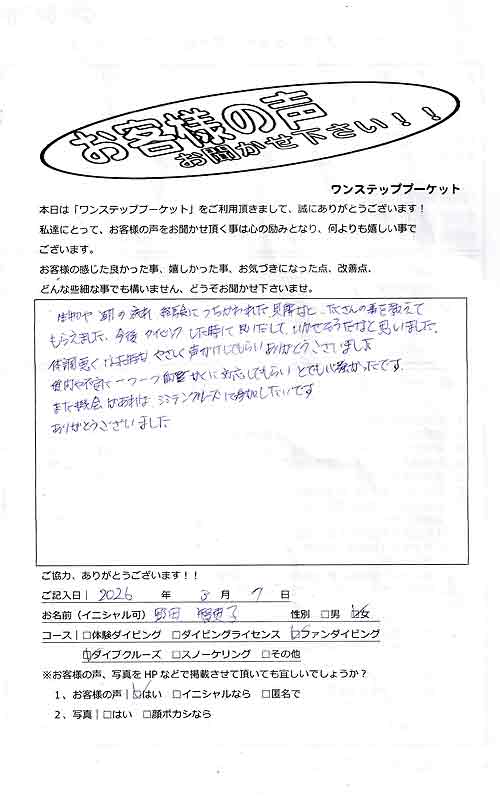 お客様の声
お聞かせ下さい！！
ワンステッププーケット
本日は「ワンステッププーケット」をご利用頂きまして、誠にありがとうございます！
私達にとって、お客様の声をお聞かせ頂く事は心の励みとなり、何よりも嬉しい事で
ございます。
お客様の感じた良かった事、嬉しかった事、お気づきになった点、改善点、
どんな些細な事でも構いません、どうぞお聞かせ下さいませ。
生物や 潮の流れ つちかわれた 見解など たくさんの事を教えて
もらえました。今後 ダイビングした時に 思いだして、いかせそうだなと思いました。
体調悪く やさしく声かけしてもらいありがとうございました
一つ一つ 対応してもらい とても心強かったです
また機会があれば シミランクルーズに参加したいです
ありがとうございました
ご協力、ありがとうございます！！
ご記入日｜2026 年 3 月 7 日
お名前（イニシャル可） 性別 □男 □女
コース｜□体験ダイビング □ダイビングライセンス □ファンダイビング
□ダイブクルーズ □スノーケリング □その他
※お客様の声、写真をHPなどで掲載させて頂いても宜しいでしょうか？
1、お客様の声｜□はい □イニシャルなら □匿名で
2、写真｜□はい □顔ボカシなら